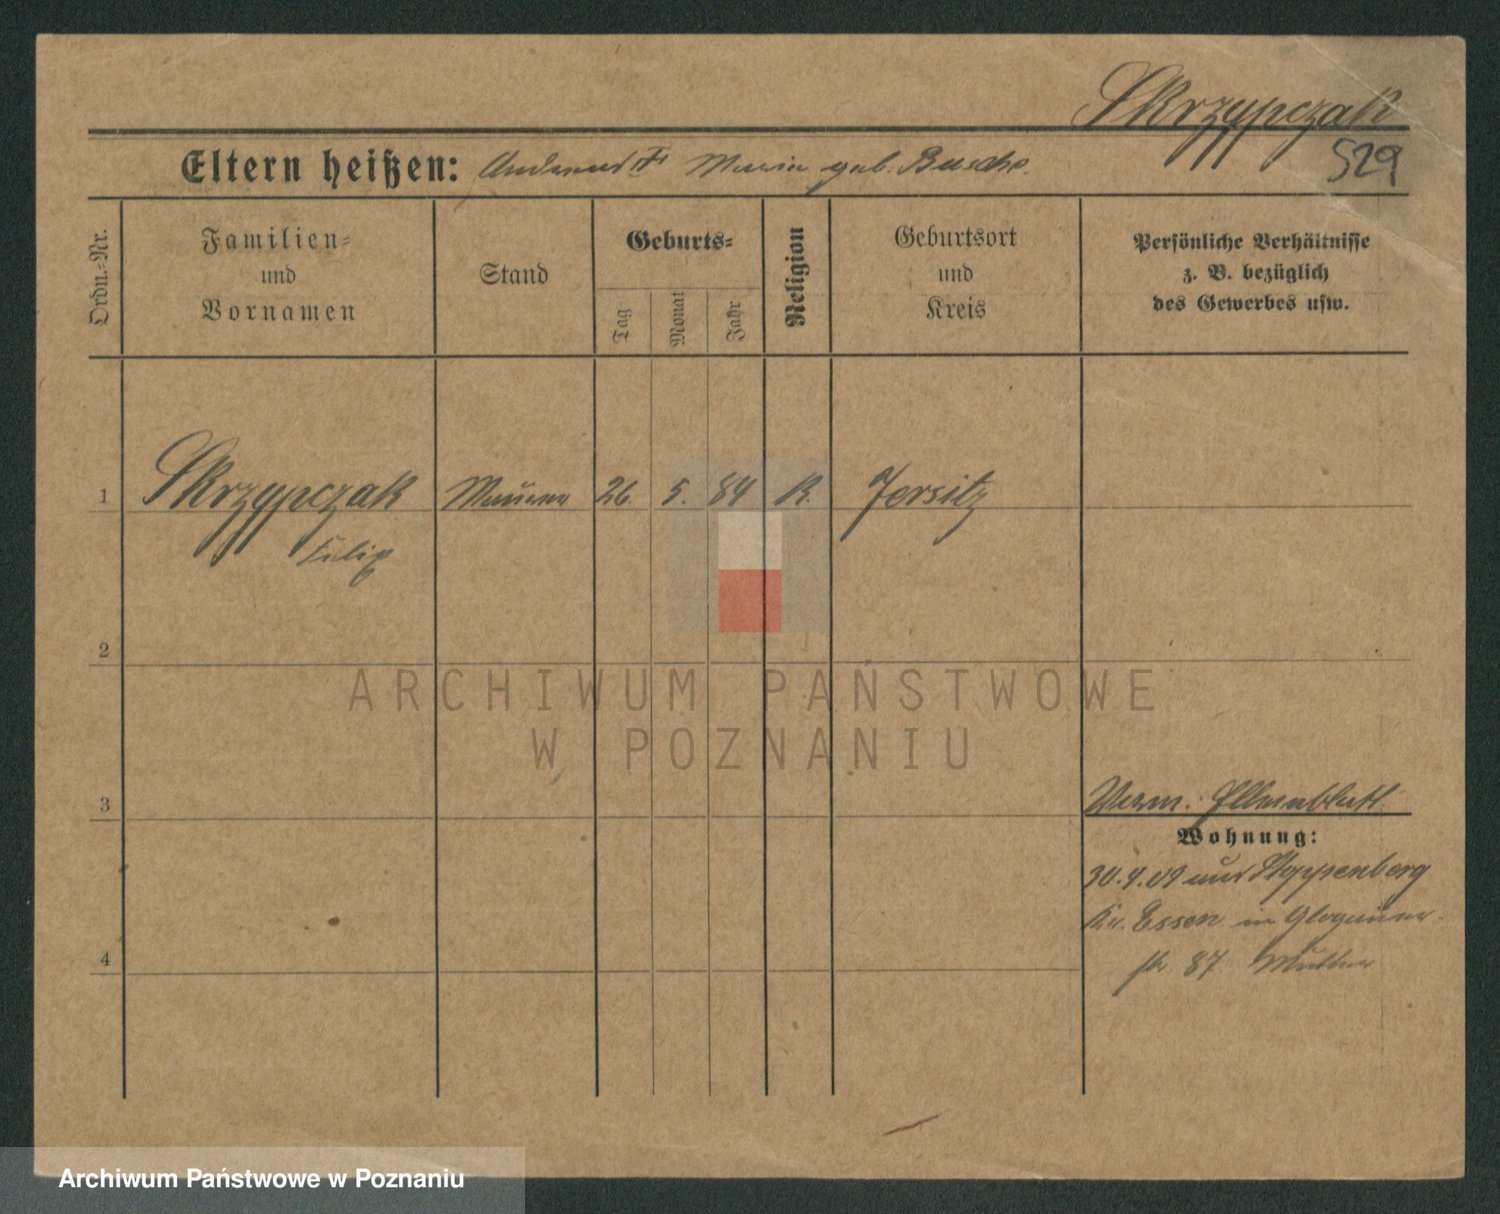 Skrzypczak
529
Eltern heißen: Maria geb. Busche
Ordn.-Nr.
Familien-
und
Vornamen
Stand
Geburts-
Tag
Monat
Jahr
Religion
Geburtsort
und
Kreis
Persönliche Verhältnisse
z. B. bezüglich
des Gewerbes usw.
1 Skrzypczak Maurer 26. 5. 84 K. Jersitz
2
3
4
Verm. Elternblatt
Wohnung:
30.4.09 aus Stoppenberg
Kr. Essen in Glogauer-
str 87 Mutter
ARCHIWUM PAŃSTWOWE
W POZNANIU
Archiwum Państwowe w Poznaniu